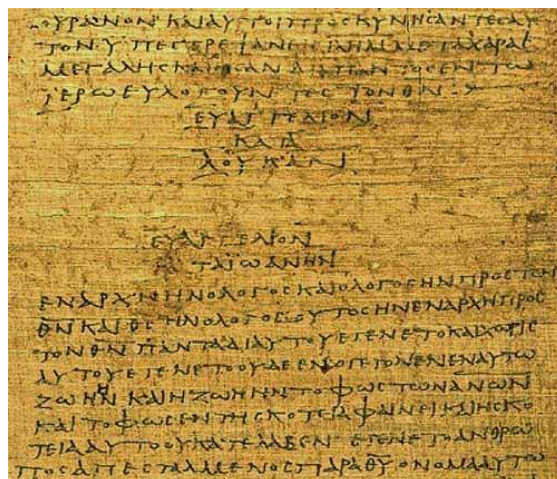 ΟΥΡΑΝΟΝ ΚΑΙ ΑΥΤΟΙ ΠΡΟϹΚΥΝΗϹΑΝΤΕϹ ΑΥ
ΤΟΝ ΥΠΕϹΤΡΕΨΑΝ ΕΙϹ ΙΗΛΗΜ ΜΕΤΑ ΧΑΡΑϹ
ΜΕΓΑΛΗϹ ΚΑΙ ΗϹΑΝ ΔΙΑ ΠΑΝΤΟϹ ΕΝ ΤΩ
ΙΕΡΩ ΕΥΛΟΓΟΥΝΤΕϹ ΤΟΝ ΘΝ
ΕΥΑΓΓΕΛΙΟΝ
ΚΑΤΑ
ΛΟΥΚΑΝ
ΕΥΑΓΓΕΛΙΟΝ
ΚΑΤΑ ΙΩΑΝΗΝ
ΕΝ ΑΡΧΗ ΗΝ Ο ΛΟΓΟϹ ΚΑΙ Ο ΛΟΓΟϹ ΗΝ ΠΡΟϹ ΤΟΝ
ΘΝ ΚΑΙ ΘϹ ΗΝ Ο ΛΟΓΟϹ ΟΥΤΟϹ ΗΝ ΕΝ ΑΡΧΗ ΠΡΟϹ
ΤΟΝ ΘΝ ΠΑΝΤΑ ΔΙ ΑΥΤΟΥ ΕΓΕΝΕΤΟ ΚΑΙ ΧΩΡΙϹ
ΑΥΤΟΥ ΕΓΕΝΕΤΟ ΟΥΔΕ ΕΝ Ο ΓΕΓΟΝΕΝ ΕΝ ΑΥΤΩ
ΖΩΗ ΗΝ ΚΑΙ Η ΖΩΗ ΗΝ ΤΟ ΦΩϹ ΤΩΝ ΑΝΩΝ
ΚΑΙ ΤΟ ΦΩϹ ΕΝ ΤΗ ϹΚΟΤΕΙΑ ΦΑΙΝΕΙ ΚΑΙ Η ϹΚΟ
ΤΕΙΑ ΑΥΤΟ ΟΥ ΚΑΤΕΛΑΒΕΝ ΕΓΕΝΕΤΟ ΑΝΘΡΩ
ΠΟϹ ΑΠΕϹΤΑΛΜΕΝΟϹ ΠΑΡΑ ΘΥ ΟΝΟΜΑ ΑΥΤΩ